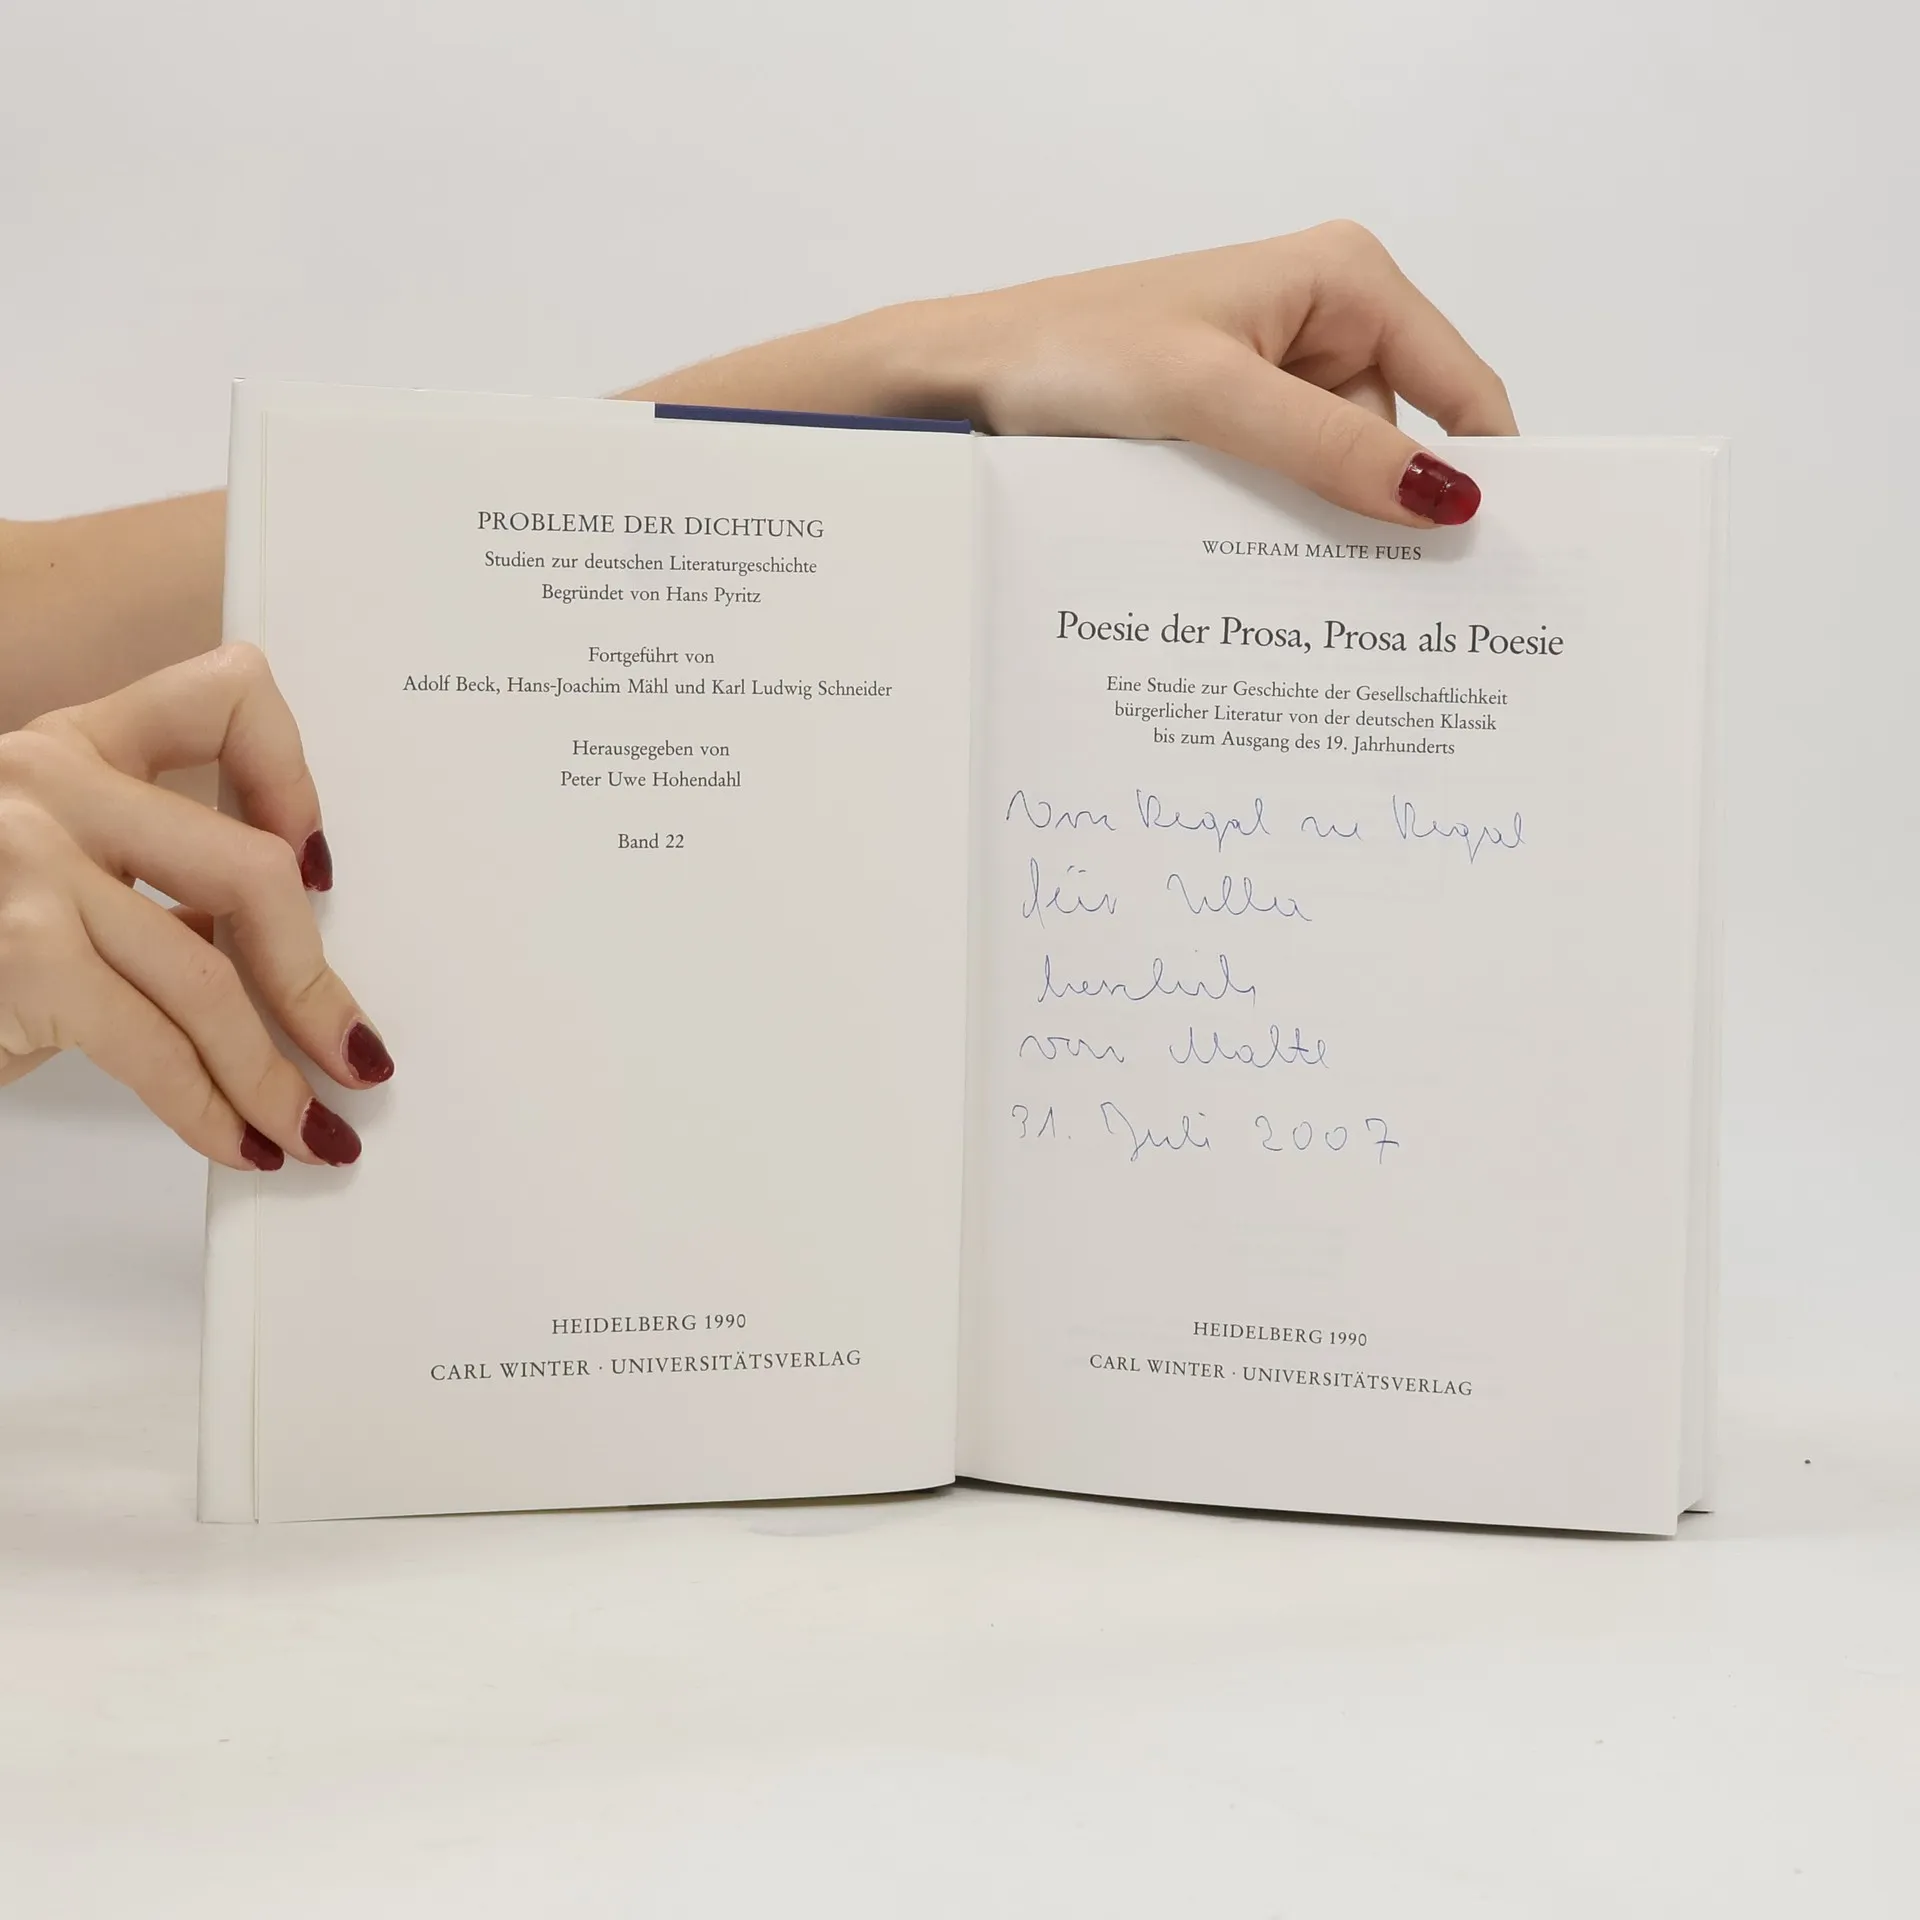 PROBLEME DER DICHTUNG
Studien zur deutschen Literaturgeschichte
Begründet von Hans Pyritz
Fortgeführt von
Adolf Beck, Hans-Joachim Mähl und Karl Ludwig Schneider
Herausgegeben von
Peter Uwe Hohendahl
Band 22
HEIDELBERG 1990
CARL WINTER · UNIVERSITÄTSVERLAG
WOLFRAM MALTE FUES
Poesie der Prosa, Prosa als Poesie
Eine Studie zur Geschichte der Gesellschaftlichkeit
bürgerlicher Literatur von der deutschen Klassik
bis zum Ausgang des 19. Jahrhunderts
Von Regal zu Regal
für Ulla
herzlich
von Malte
31. Juli 2007
HEIDELBERG 1990
CARL WINTER · UNIVERSITÄTSVERLAG